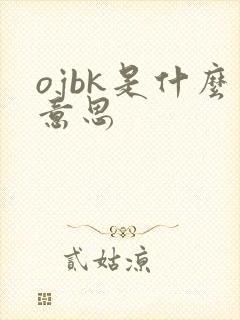 ojbk是什麼
意思
貳姑涼